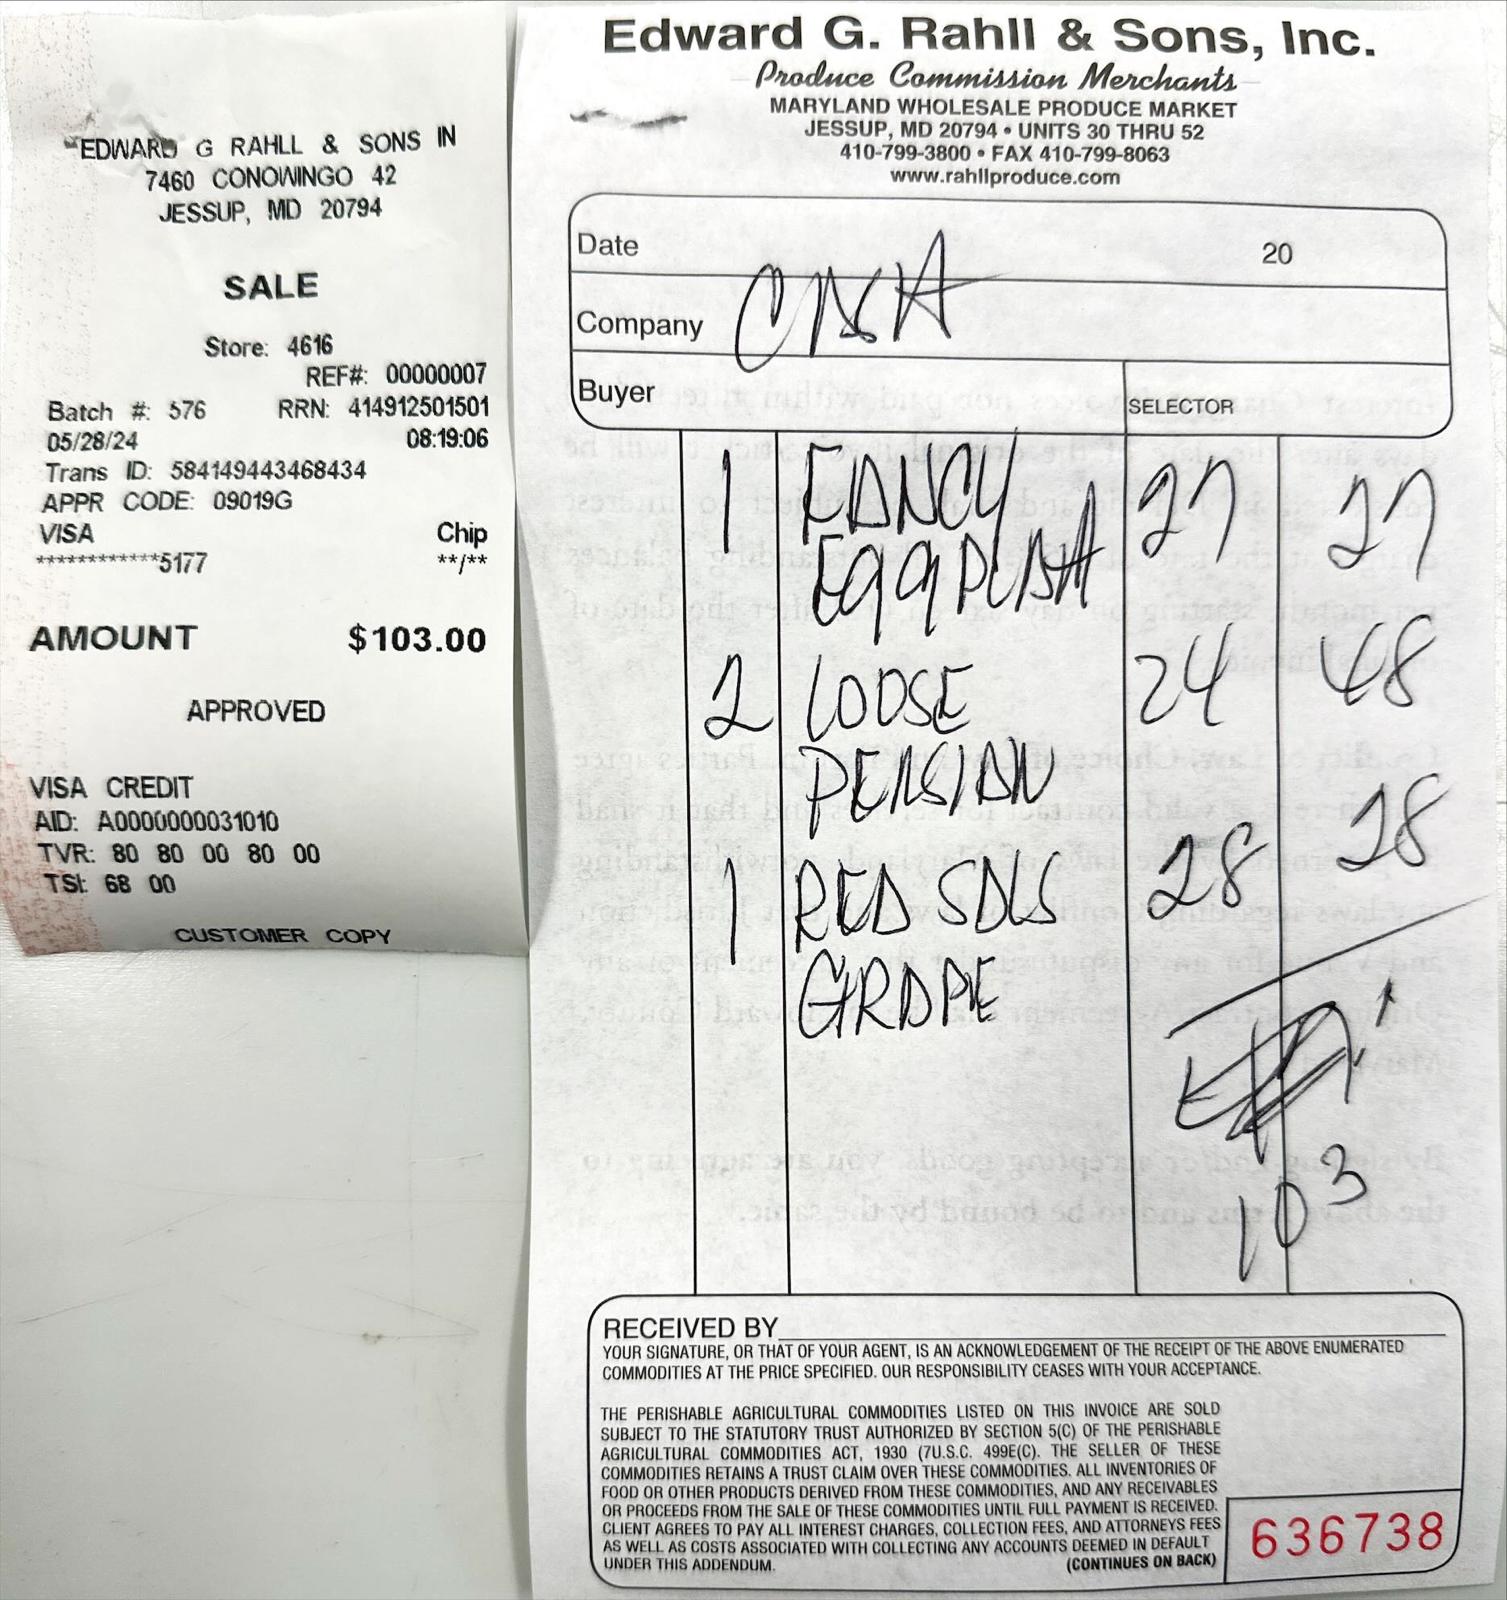 EDWARD G RAHLL & SONS IN
7460 CONOWINGO 42
JESSUP, MD 20794
SALE
Store: 4616
REF#: 00000007
Batch #: 576 RRN: 414912501501
05/28/24 08:19:06
Trans ID: 584149443468434
APPR CODE: 09019G
VISA Chip
************5177 **/**
AMOUNT $103.00
APPROVED
VISA CREDIT
AID: A0000000031010
TVR: 80 80 00 80 00
TSI: 68 00
CUSTOMER COPY
Edward G. Rahll & Sons, Inc.
Produce Commission Merchants
MARYLAND WHOLESALE PRODUCE MARKET
JESSUP, MD 20794 • UNITS 30 THRU 52
410-799-3800 • FAX 410-799-8063
www.rahllproduce.com
Date 20
Company
Buyer
SELECTOR
1 FANCY 27 27
2 LOOSE 24 48
PERSIAN
1 RED SDLS 28 28
GRAPE
103
RECEIVED BY
YOUR SIGNATURE, OR THAT OF YOUR AGENT, IS AN ACKNOWLEDGEMENT OF THE RECEIPT OF THE ABOVE ENUMERATED
COMMODITIES AT THE PRICE SPECIFIED. OUR RESPONSIBILITY CEASES WITH YOUR ACCEPTANCE.
THE PERISHABLE AGRICULTURAL COMMODITIES LISTED ON THIS INVOICE ARE SOLD
SUBJECT TO THE STATUTORY TRUST AUTHORIZED BY SECTION 5(C) OF THE PERISHABLE
AGRICULTURAL COMMODITIES ACT, 1930 (7U.S.C. 499E(C). THE SELLER OF THESE
COMMODITIES RETAINS A TRUST CLAIM OVER THESE COMMODITIES. ALL INVENTORIES OF
FOOD OR OTHER PRODUCTS DERIVED FROM THESE COMMODITIES, AND ANY RECEIVABLES
OR PROCEEDS FROM THE SALE OF THESE COMMODITIES UNTIL FULL PAYMENT IS RECEIVED.
CLIENT AGREES TO PAY ALL INTEREST CHARGES, COLLECTION FEES, AND ATTORNEYS FEES
AS WELL AS COSTS ASSOCIATED WITH COLLECTING ANY ACCOUNTS DEEMED IN DEFAULT
UNDER THIS ADDENDUM. (CONTINUES ON BACK)
636738